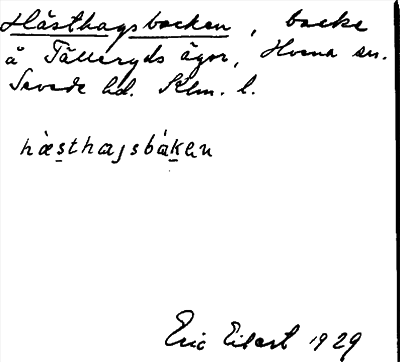 Hästhagsbacken, backe
å Tälleryds ägor, Hvena sn.
Sevede hd. Klm. l.
hæsthagsbakan
Eric Eilert 1929